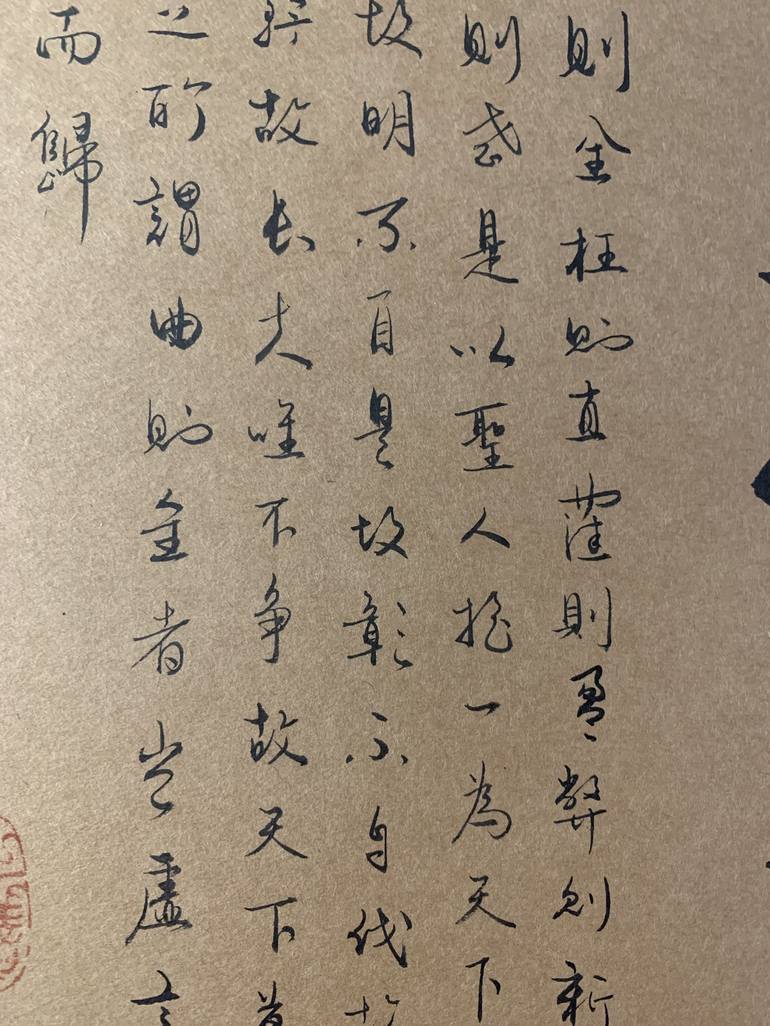 則全枉則直窪則盈弊則新
則惑是以聖人抱一為天下
故明不自是故彰不自伐故
矜故長夫唯不争故天下莫
之所謂曲則全者豈虛言
而歸